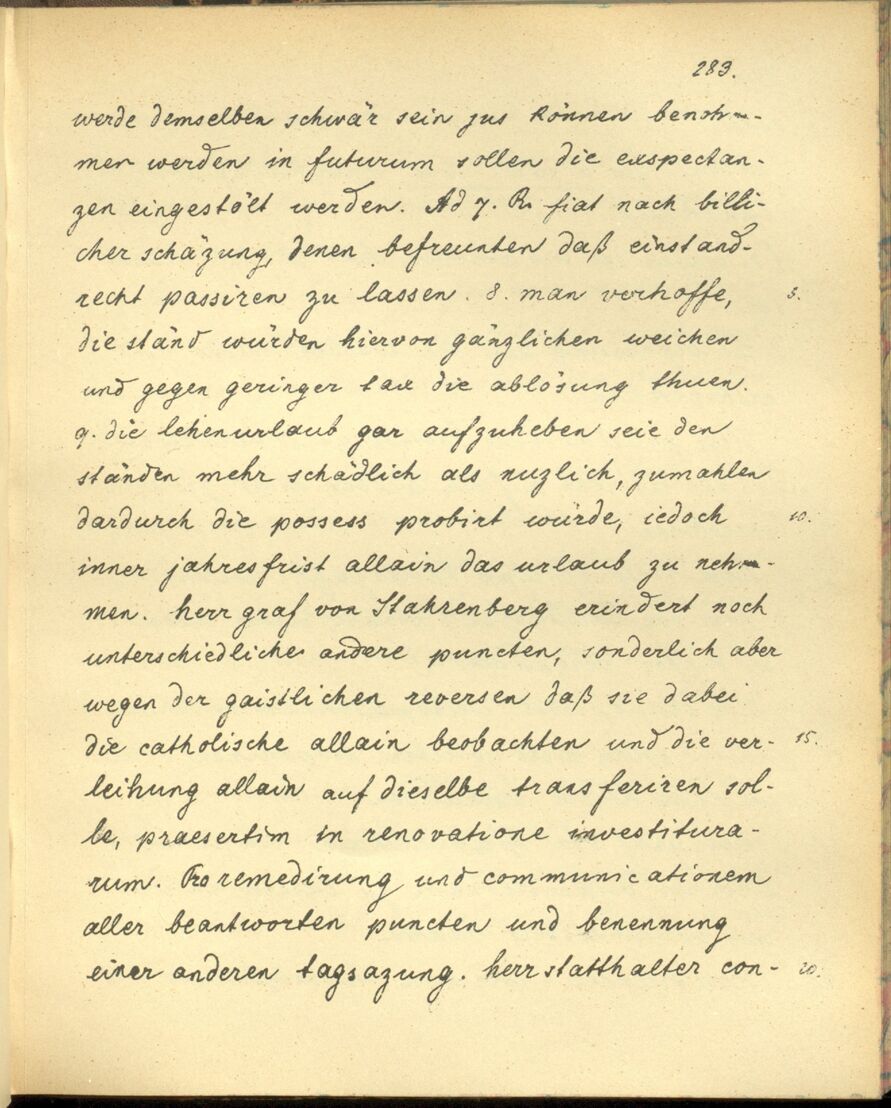 283.
werde demselben schwär sein jus können benoh-
men werden in futurum sollen die exspectan-
zen eingestölt werden. Ad 7. R. fiat nach billi-
cher schäzung, denen befreunten daß einstand-
recht passiren zu lassen. 8. man verhoffe, 5.
die ständ würden hiervon gänzlichen weichen
und gegen geringer tax die ablösung thuen.
9. die lehenurlaub gar aufzuheben seie den
ständen mehr schädlich als nuzlich, zumahlen
dardurch die possess probirt würde, iedoch 10.
inner jahresfrist allain das urlaub zu neh-
men. herr graf von Stahrenberg erindert noch
unterschiedliche andere puncten, sonderlich aber
wegen der gaistlichen reversen daß sie dabei
die catholische allain beobachten und die ver- 15.
leihung allain auf dieselbe transferiren sol-
le, praesertim in renovatione investitura-
rum. Pro remedirung und communicationem
aller beantworten puncten und benennung
einer anderen tagsazung. herr statthalter con- 20.